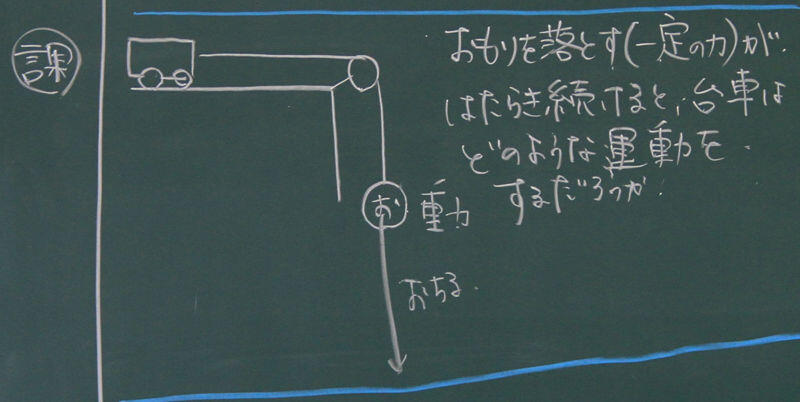 課
おもりを落とす(一定の力)が
はたらき続けると,台車は
どのような運動を
するだろうか.
お
重力
おちる.